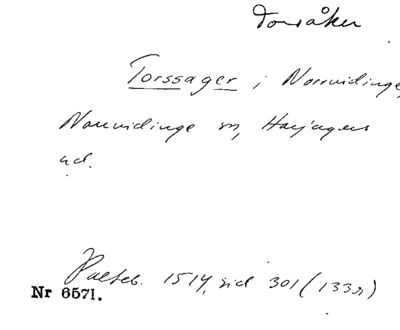 Torsåker
Torssager i Norrvidinge,
Norrvidinge sn, Harjagers
hd.
Palteb. 1514, sid 301 (133r)
Nr 6571.